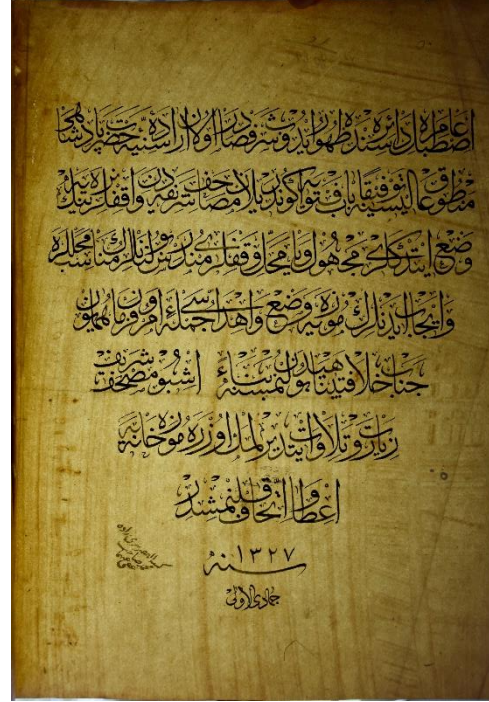 اصطبل عامره دائره سنده ظهور ايدوب شرفصادر اولان اراده سنيه حضرت پادشاهى
منطوق عاليسنه توفيقا باب فتوايه كوندريلان مصاحف شريفه دن واقفلرينك
وضع ايتدكلرى مجهول محل وقفلرى مندرس بولنانلرك مناسب محللره
وايجاب ايدنلرك موزه يه وضع و اهداسى جمله امر و فرمان همايون
جناب خلافتپناهيدن بولنمسنه بناء اشبو مصحف شريف
زيارت و تلاوت ايتديرلمك اوزره موزه خانه يه
اعطا و اتحاف قلنمشدر
سنه ١٣٢٧
جمادى الاولى